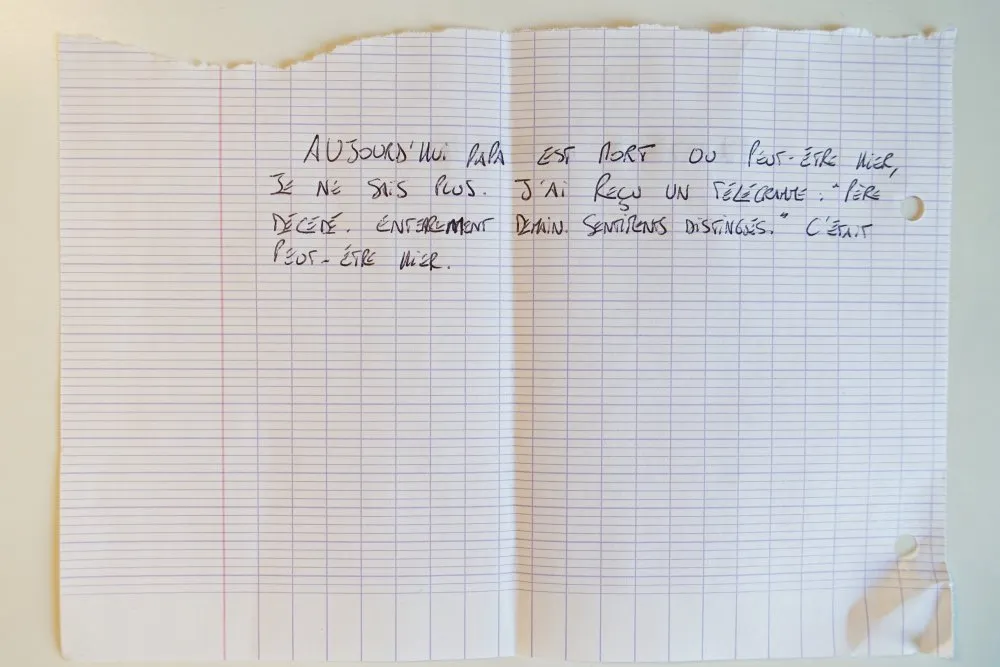 AUJOURD'HUI PAPA EST MORT OU PEUT-ÊTRE HIER,
JE NE SAIS PLUS. J'AI REÇU UN TÉLÉGRAMME : "PÈRE
DÉCÉDÉ. ENTERREMENT DEMAIN. SENTIMENTS DISTINGUÉS." C'ÉTAIT
PEUT-ÊTRE HIER.